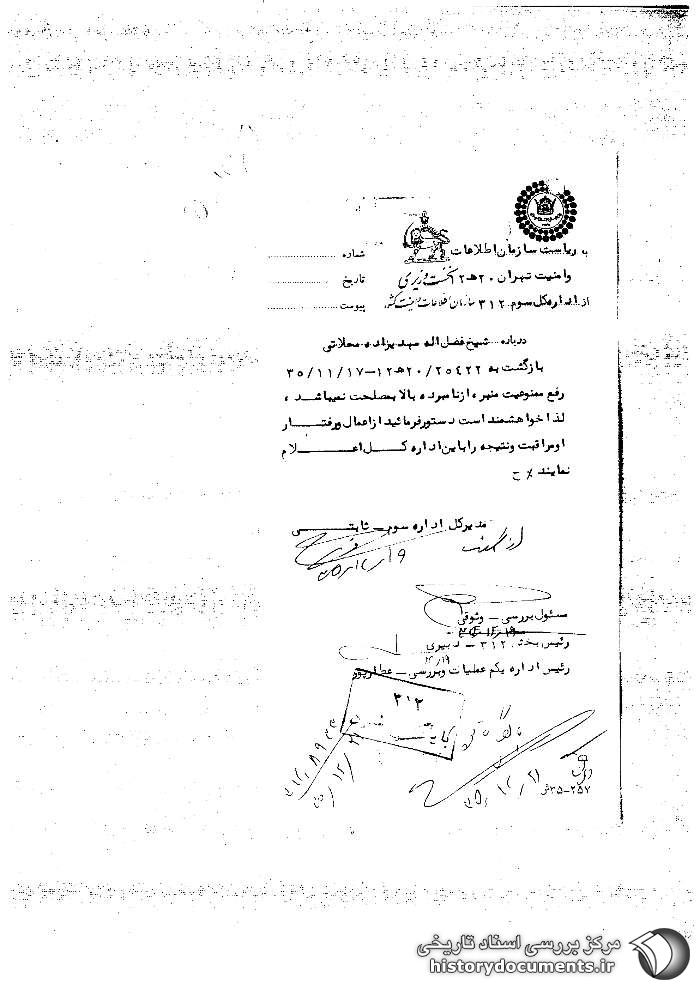 به ریاست سازمان اطلاعات
وامنیت تهران ۲۰هـ۱۲ نخست وزیری
از اداره کل سوم ۳۱۲ سازمان اطلاعات و امنیت کشور
شماره
تاریخ
پیوست
درباره شیخ فضل اله مهدیزاده محلاتی
بازگشت به ۲۰/۲۵۴۲۲هـ۱۲-۳۵/۱۱/۱۷
رفع ممنوعیت منبر، از نامبرده بالا بمصلحت نمیباشد،
لذا خواهشمند است دستور فرمائید از اعمال و رفتــــار
او مراقبت و نتیجه را باین اداره کــل اعـــلام
نمایند
مدیر کل اداره سوم ـ ثابتــی
مسئول بررسی ـ وثوقی
رئیس بخش ۳۱۲ ـ دبیری
رئیس اداره یکم عملیات و بررسی ـ عطارپور
۳۱۲
۳۵-۲۵۷
مرکز بررسی اسناد تاریخی
historydocuments.ir